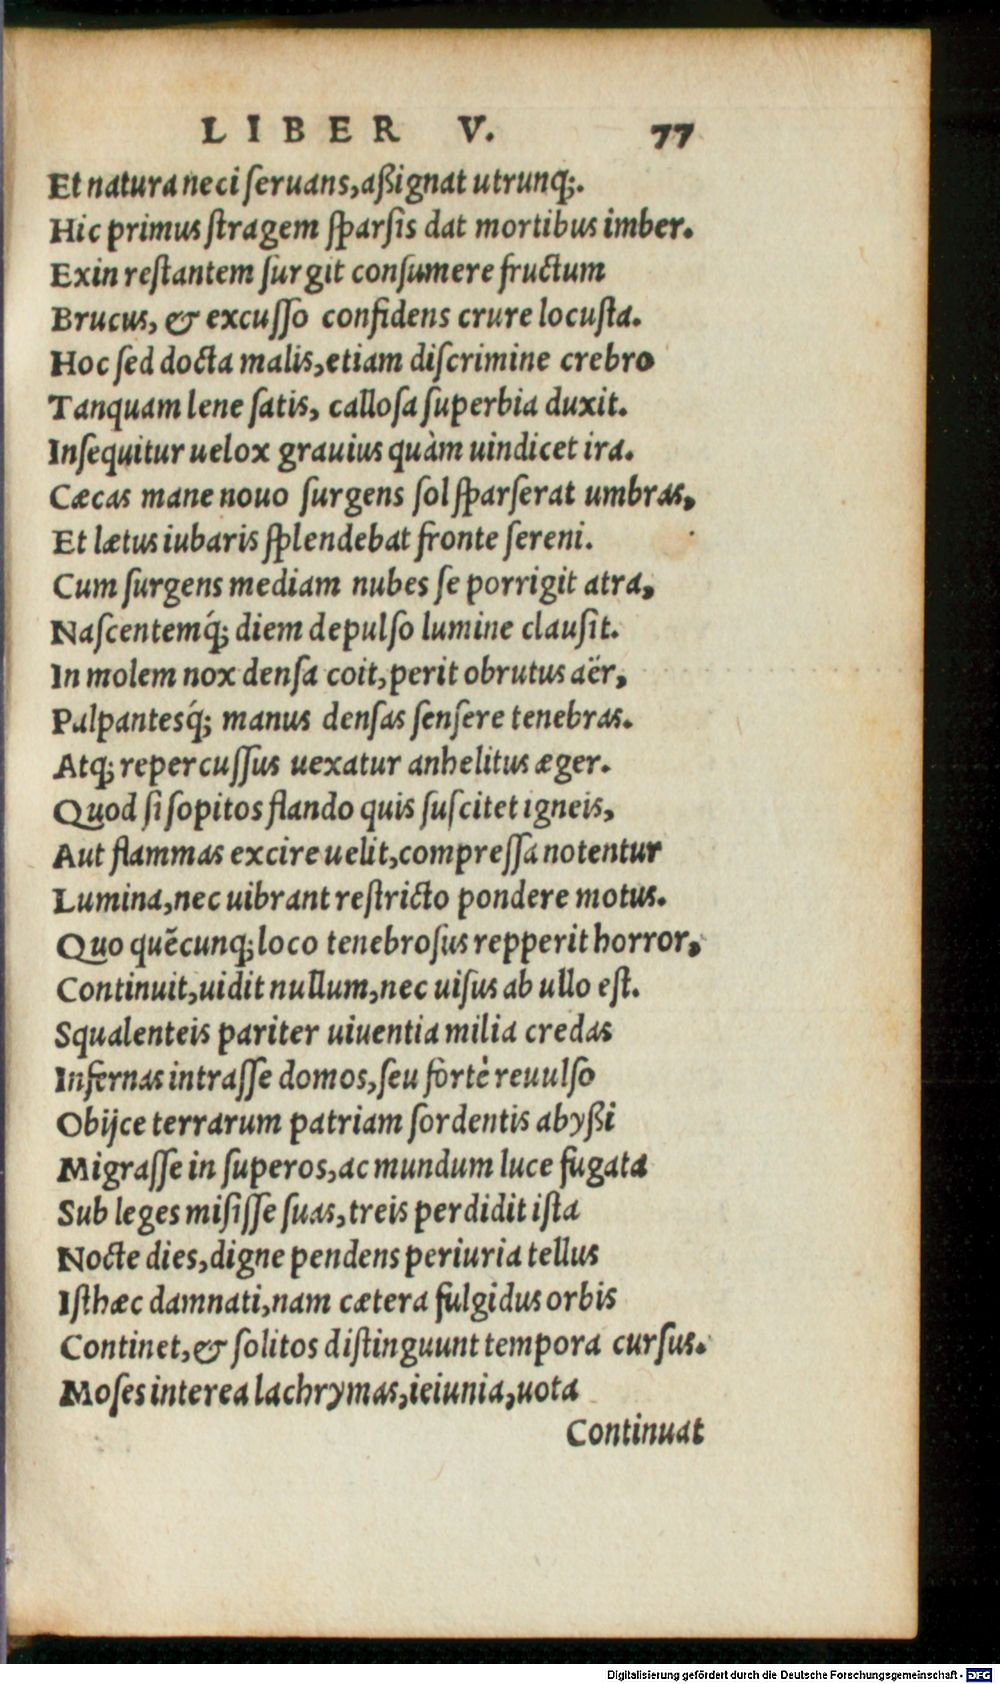 LIBER V. 77
Et natura neci ſeruans, aßignat utrunq;.
Hic primus ſtragem ſparſis dat mortibus imber.
Exin reſtantem ſurgit conſumere fructum
Brucus, & excuſſo confidens crure locuſta.
Hoc ſed docta malis, etiam diſcrimine crebro
Tanquam lene ſatis, calloſa ſuperbia duxit.
Inſequitur uelox grauius quàm uindicet ira.
Cæcas mane nouo ſurgens ſol ſparſerat umbras,
Et lætus iubaris ſplendebat fronte ſereni.
Cum ſurgens mediam nubes ſe porrigit atra,
Naſcentemq́; diem depulſo lumine clauſit.
In molem nox denſa coit, perit obrutus aër,
Palpantesq́; manus denſas ſenſere tenebras.
Atq; repercuſſus uexatur anhelitus æger.
Quod ſi ſopitos flando quis ſuſcitet igneis,
Aut flammas excire uelit, compreſſa notentur
Lumina, nec uibrant reſtricto pondere motus.
Quo quẽcunq; loco tenebroſus repperit horror,
Continuit, uidit nullum, nec uiſus ab ullo eſt.
Squalenteis pariter uiuentia milia credas
Infernas intraſſe domos, ſeu fortè reuulſo
Obijce terrarum patriam ſordentis abyßi
Migraſſe in ſuperos, ac mundum luce fugata
Sub leges miſiſſe ſuas, treis perdidit iſta
Nocte dies, digne pendens periuria tellus
Iſthæc damnati, nam cætera fulgidus orbis
Continet, & ſolitos diſtinguunt tempora curſus.
Moſes interea lachrymas, ieiunia, uota
Continuat
Digitalisierung gefördert durch die Deutsche Forschungsgemeinschaft - DFG